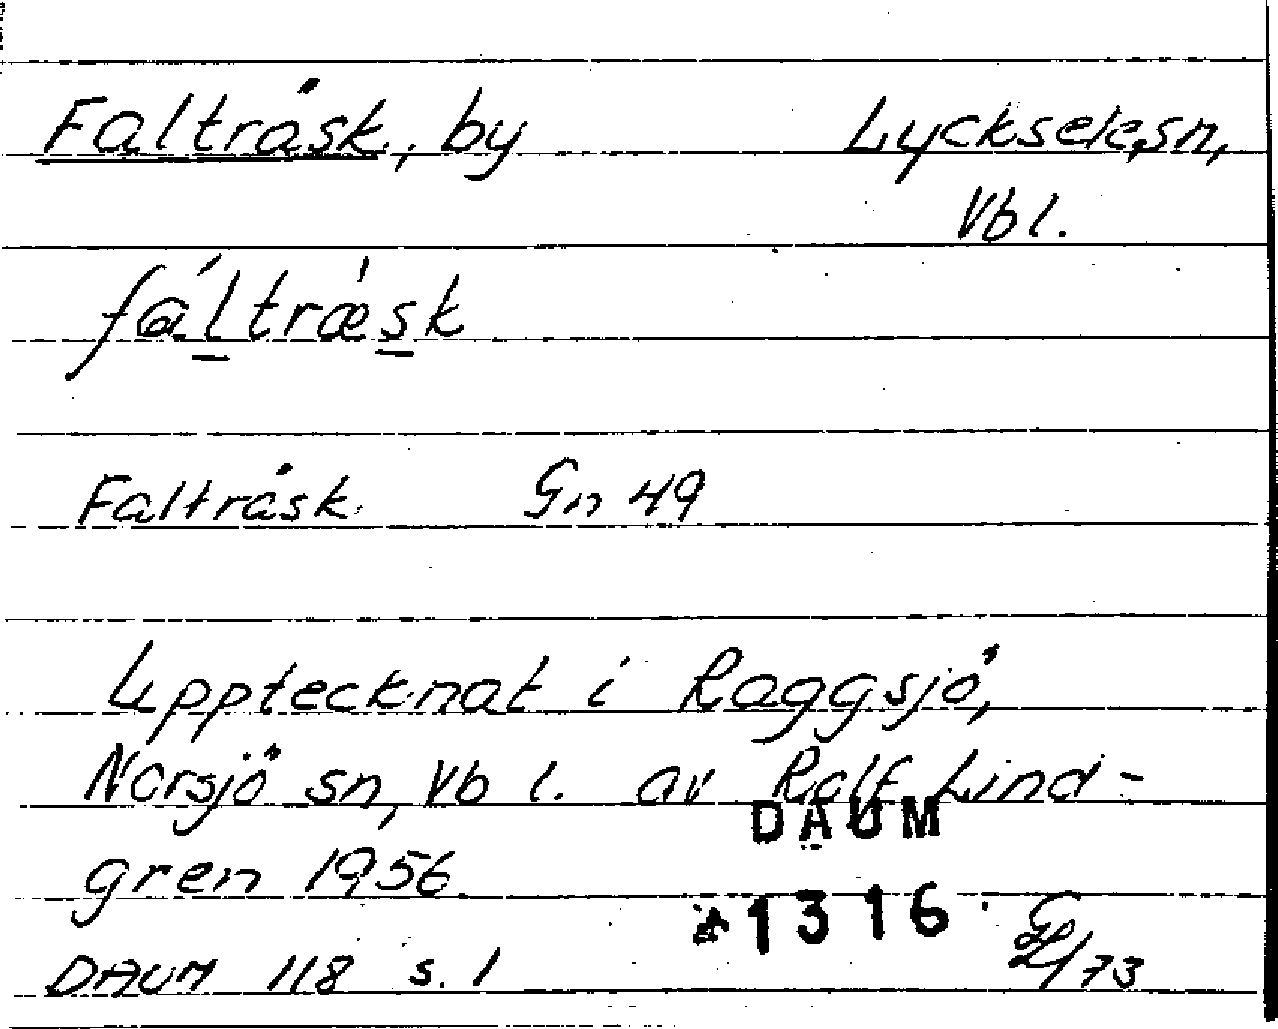 Falträsk, by Lycksele, sn,
Vb l.
fáltræ̀sk
Falträsk Gn 49
Upptecknat i Raggsjö,
Norsjö sn, Vb l. av Rolf Lind-
gren 1956
DAUM
1316
DAUM 118 s. 1 /73